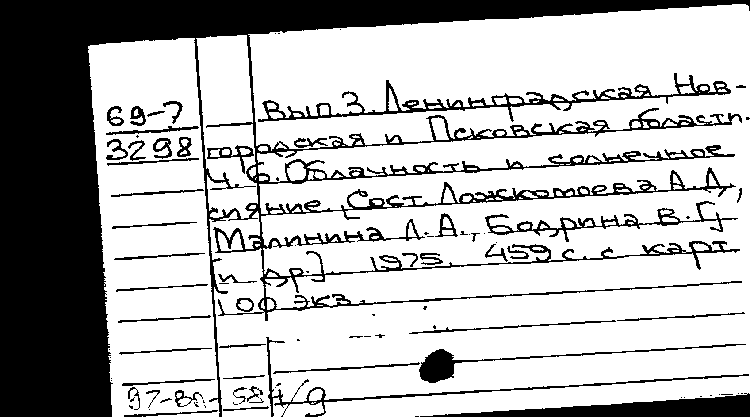 69-7 Вып.3. Ленинградская, Нов-
3298 городская и Псковская области.
Ч.6. Облачность и солнечное
сияние. [Сост. Ложкомоева А.Д.,
Малинина Л.А., Бодрина В.Г.]
[и др.] 1975. 459 с. с карт.
100 экз.
97-ВП-584/9